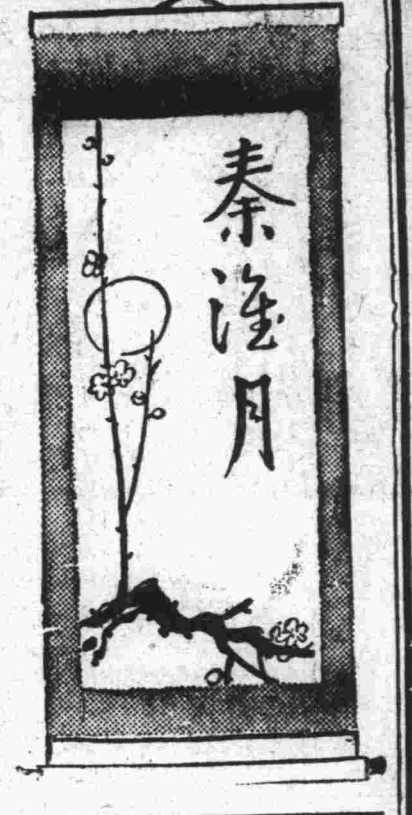 秦淮月